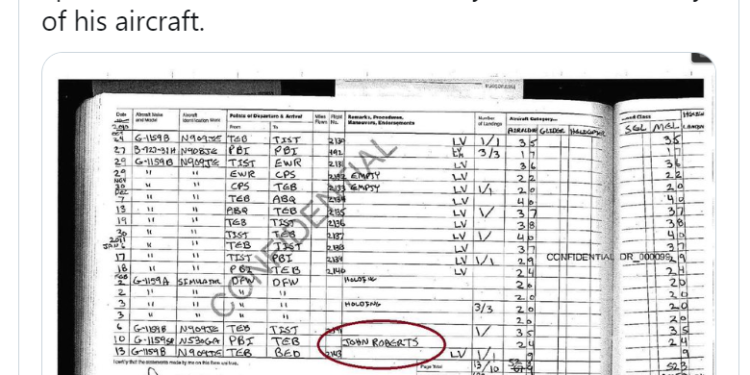 of his aircraft.
CONFIDENTIAL
Date Aircraft Make and Model Aircraft Identification Mark Points of Departure & Arrival Miles Flown Flight No. Remarks, Procedures, Maneuvers, Endorsements Number of Landings Aircraft Category
From To AIRPLANE GLIDER SEL MEL
G-1159B N909JE TEB TIST LV 1/1 35 35
27 B-727-31H N908JE PBI PBI 3/3 17 17
29 G-1159B N909JE TIST EWR LV 36 36
29 " " EWR CPS EMPTY LV 22 22
" " CPS TEB EMPTY LV 1/1 20 20
7 " " TEB ABQ 2134 LV 40 40
13 " " ABQ TEB 2135 LV 1/ 37 37
19 " " TEB TIST 2136 LV 38 38
30 " " TIST TEB 2137 LV 1/ 40 40
" " TEB TIST 2138 LV 37 37
17 " " TIST PBI 2139 LV 1/1 29 CONFIDENTIAL DR_000099 29
18 " " PBI TEB 2140 LV 24 24
2 G-1159A SIMULATOR DFW DFW HOLDING 20 20
2 " " " " 20 20
3 " " " " HOLDING 3/3 20 20
3 " " " " 20 20
6 G-1159B N909JE TEB TIST 1/ 35 35
10 PBI TEB JOHN ROBERTS 24 24
13 G-1159B N909JE TEB BED LV 1/1 9 9
I certify that the statements made by me on this form are true. Page Total 13/10 523